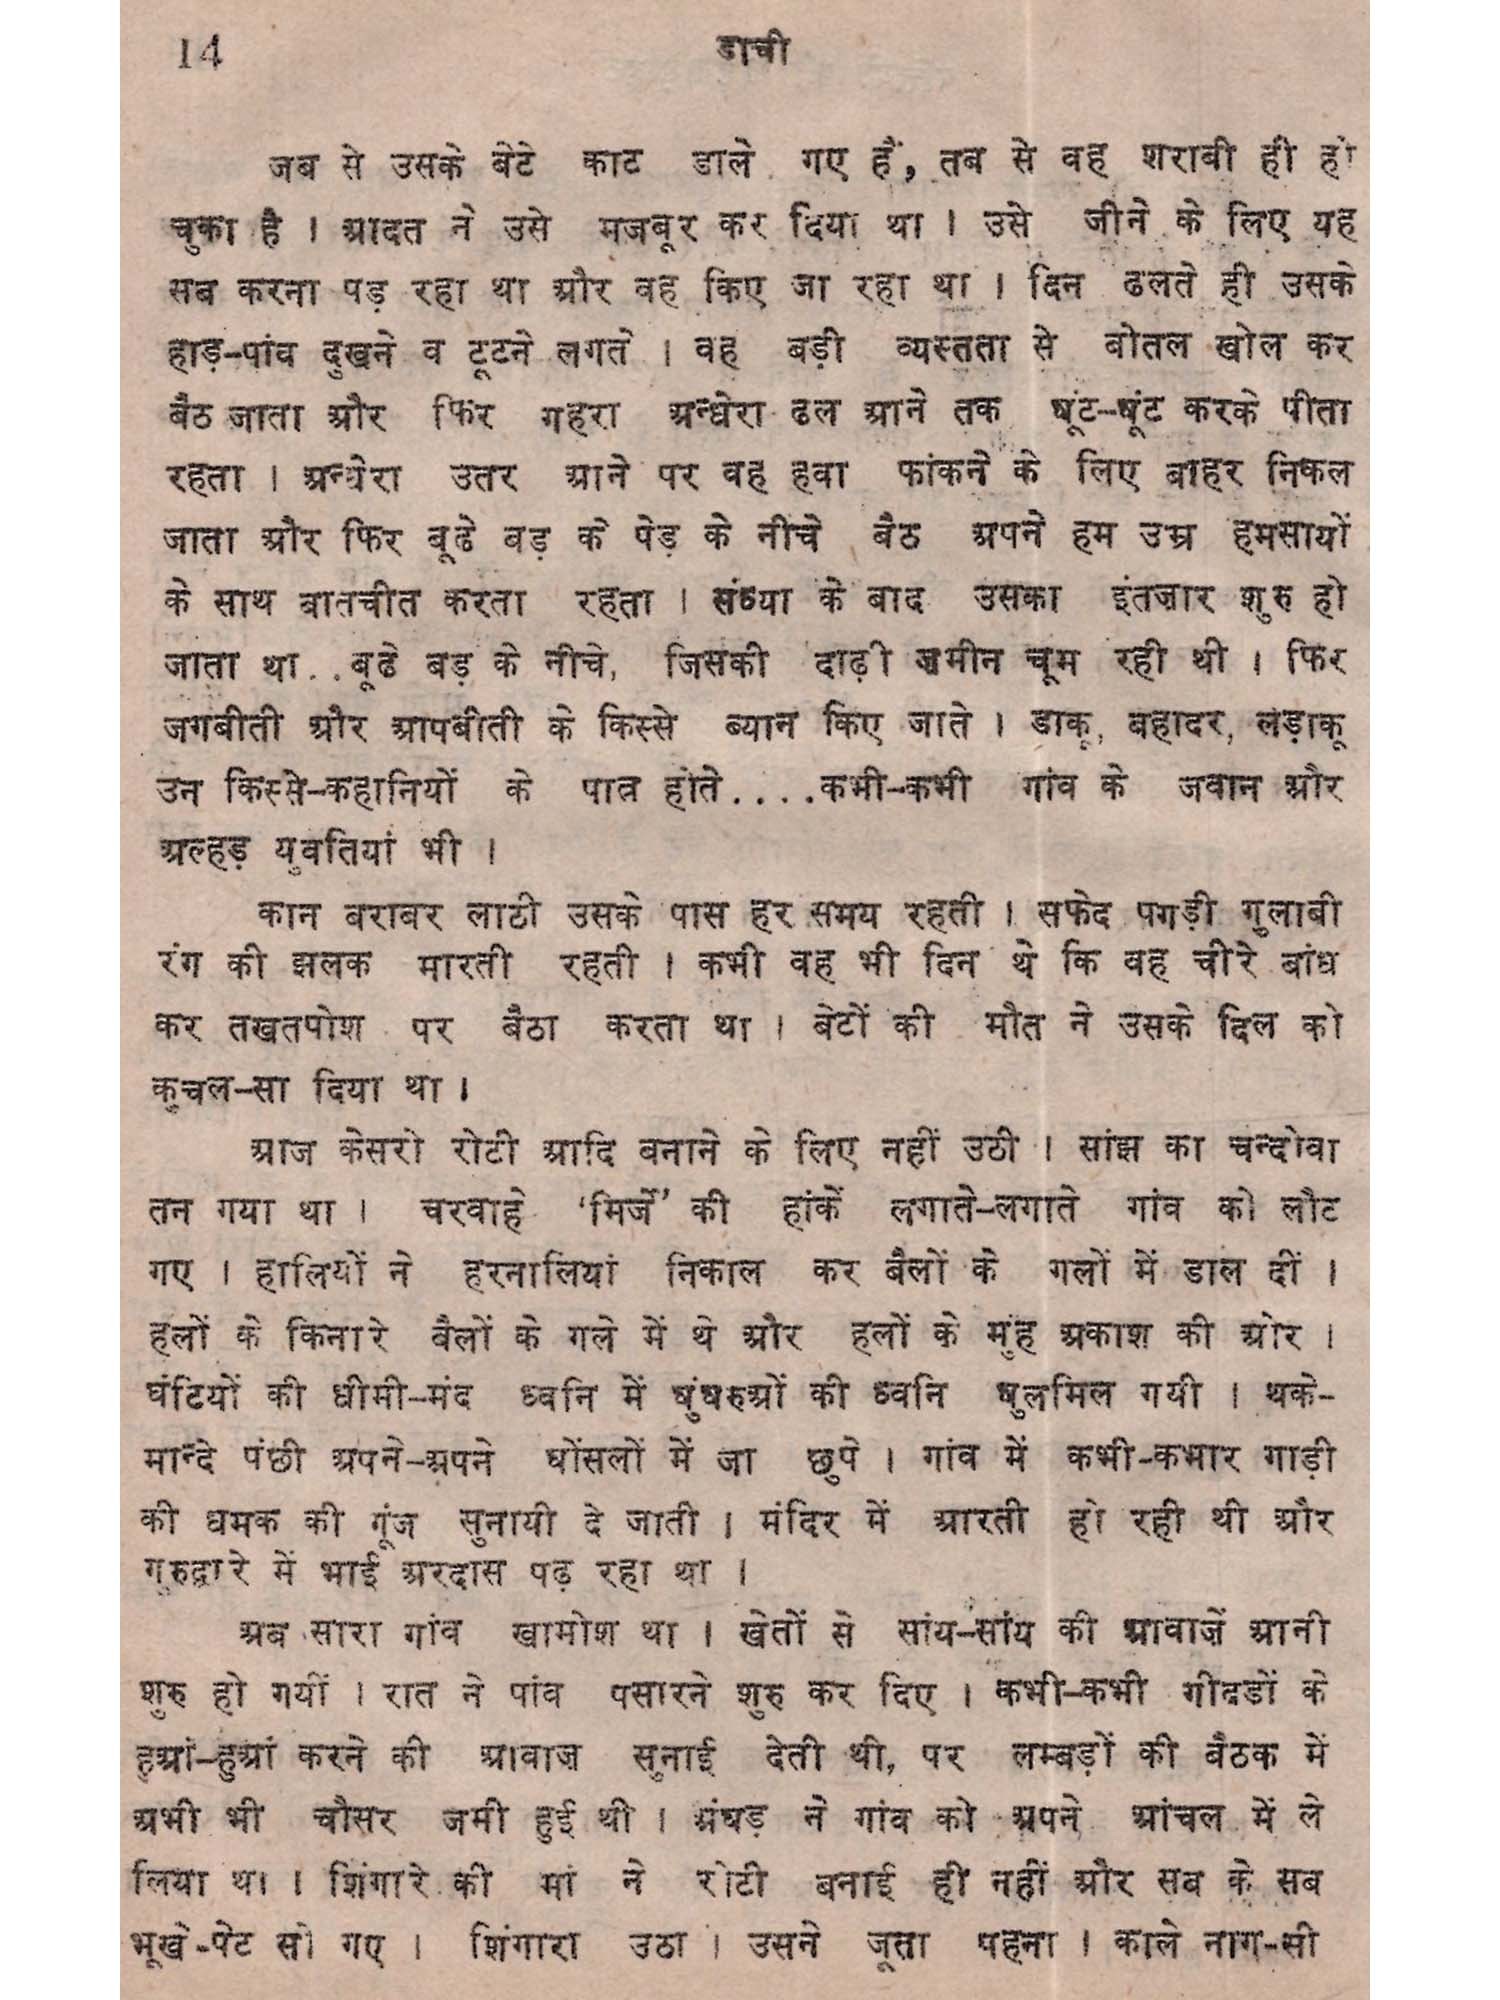 14
डाची
जब से उसके बेटे काट डाले गए हैं, तब से वह शराबी ही हो
चुका है । आदत ने उसे मजबूर कर दिया था । उसे जीने के लिए यह
सब करना पड़ रहा था और वह किए जा रहा था । दिन ढलते ही उसके
हाड़-पांव दुखने व टूटने लगते । वह बड़ी व्यस्तता से बोतल खोल कर
बैठ जाता और फिर गहरा अन्धेरा ढल आने तक घूंट-घूंट करके पीता
रहता । अन्धेरा उतर आने पर वह हवा फांकने के लिए बाहर निकल
जाता और फिर बूढे बड़ के पेड़ के नीचे बैठ अपने हम उम्र हमसायों
के साथ बातचीत करता रहता । संध्या के बाद उसका इंतज़ार शुरु हो
जाता था...बूढे बड़ के नीचे, जिसकी दाढ़ी ज़मीन चूम रही थी । फिर
जगबीती और आपबीती के किस्से ब्यान किए जाते । डाकू, बहादर, लड़ाकू
उन किस्से-कहानियों के पात्र होते....कभी-कभी गांव के जवान और
अल्हड़ युवतियां भी ।
कान बराबर लाठी उसके पास हर समय रहती । सफेद पगड़ी गुलाबी
रंग की झलक मारती रहती । कभी वह भी दिन थे कि वह चीरे बांध
कर तखतपोश पर बैठा करता था । बेटों की मौत ने उसके दिल को
कुचल-सा दिया था ।
आज केसरो रोटी आदि बनाने के लिए नहीं उठी । सांझ का चन्दोवा
तन गया था । चरवाहे ‘मिर्जे’ की हांकें लगाते-लगाते गांव को लौट
गए । हालियों ने हरनालियां निकाल कर बैलों के गलों में डाल दीं ।
हलों के किनारे बैलों के गले में थे और हलों के मुंह अकाश की ओर ।
घंटियों की धीमी-मंद ध्वनि में घुंघरुओं की ध्वनि घुलमिल गयी । थके-
मान्दे पंछी अपने-अपने घोंसलों में जा छुपे । गांव में कभी-कभार गाड़ी
की धमक की गूंज सुनायी दे जाती । मंदिर में आरती हो रही थी और
गुरुद्वारे में भाई अरदास पढ़ रहा था ।
अब सारा गांव खामोश था । खेतों से सांय-सांय की आवाज़ें आनी
शुरु हो गयीं । रात ने पांव पसारने शुरु कर दिए । कभी-कभी गीदडों के
हुआं-हुआं करने की आवाज़ सुनाई देती थी, पर लम्बड़ों की बैठक में
अभी भी चौसर जमी हुई थी । अंघड़ ने गांव को अपने आंचल में ले
लिया था । शिंगारे की मां ने रोटी बनाई ही नहीं और सब के सब
भूखे-पेट सो गए । शिंगारा उठा । उसने जूता पहना । काले नाग-सी